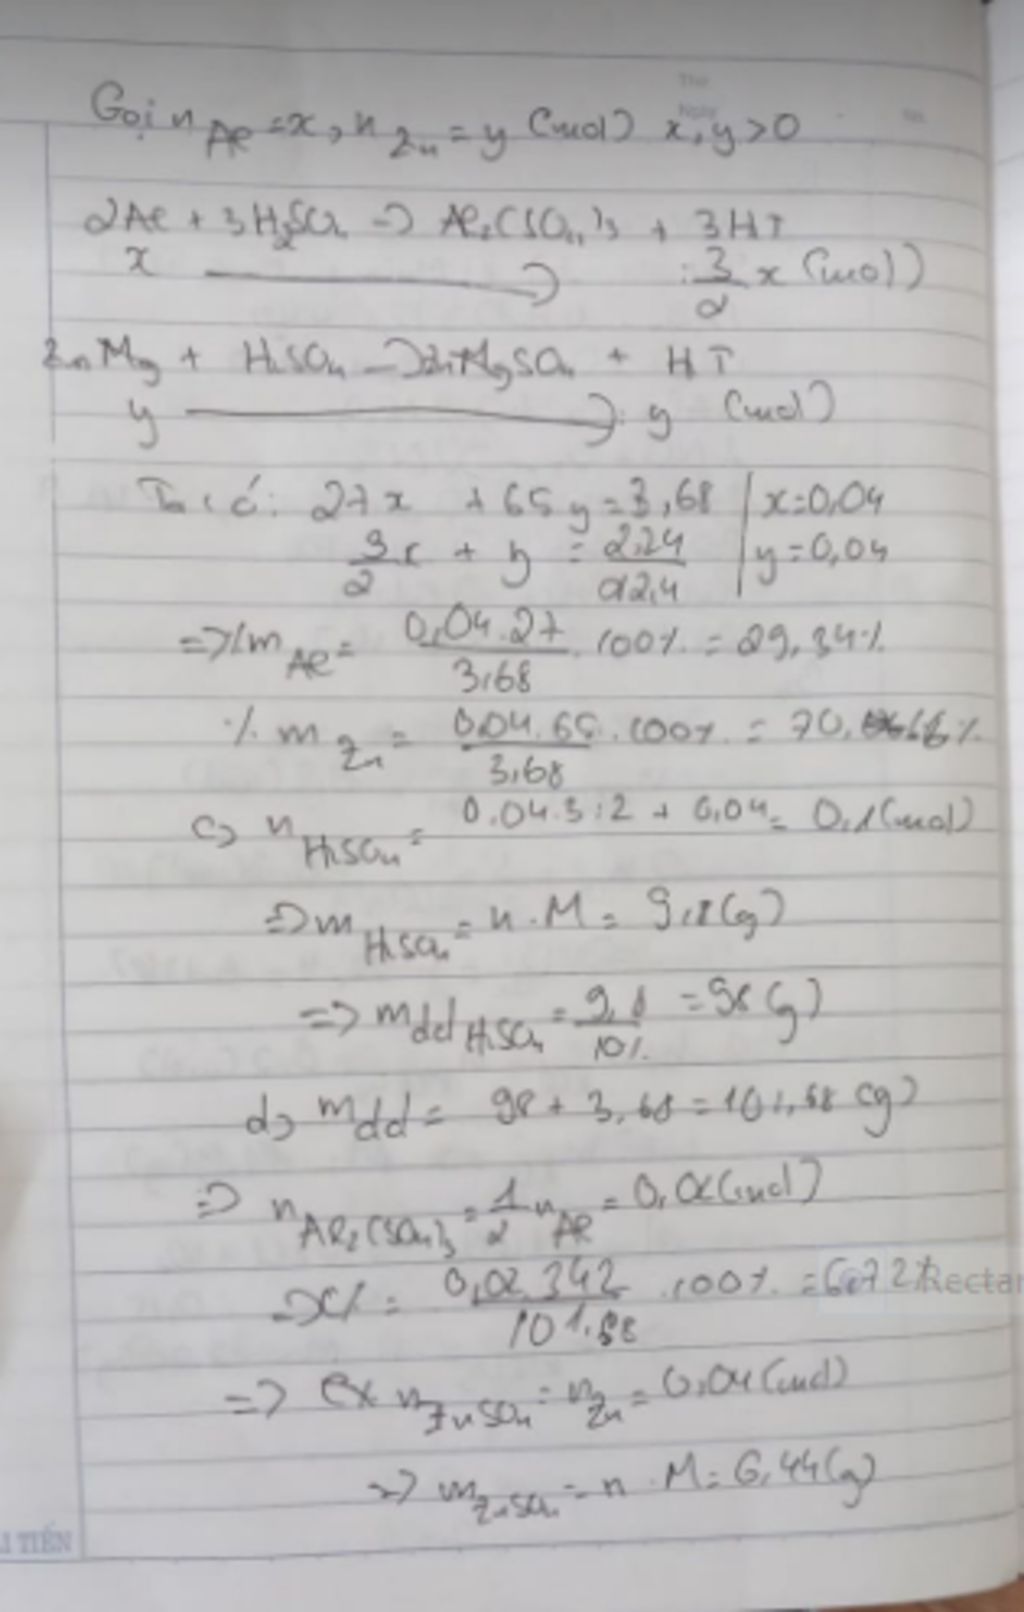 Gọi n Al = x, n Zn = y (mol) x, y > 0
2Al + 3H2SO4 => Al2(SO4)3 + 3H↑
x → 3/2 x (mol)
Zn Mg + H2SO4 → Zn MgSO4 + H↑
y → y (mol)
Ta có: 27x + 65y = 3,68 | x = 0,04
3/2 x + y = 2,24/22,4 | y = 0,04
=> % m Al = 0,04.27/3,68 . 100% = 29,34%
% m Zn = 0,04.65/3,68 . 100% = 70,66%
c) n H2SO4 = 0,04.3:2 + 0,04 = 0,1 (mol)
=> m H2SO4 = n.M = 9,8 (g)
=> m dd H2SO4 = 9,8/10% = 98 (g)
d) m dd = 98 + 3,68 = 101,68 (g)
=> n Al2(SO4)3 = 1/2 n Al = 0,02 (mol)
=> C% = 0,02.342/101,68 . 100% = 6,72%
=> n ZnSO4 = n Zn = 0,04 (mol)
=> m ZnSO4 = n.M = 6,44 (g)
TIẾN